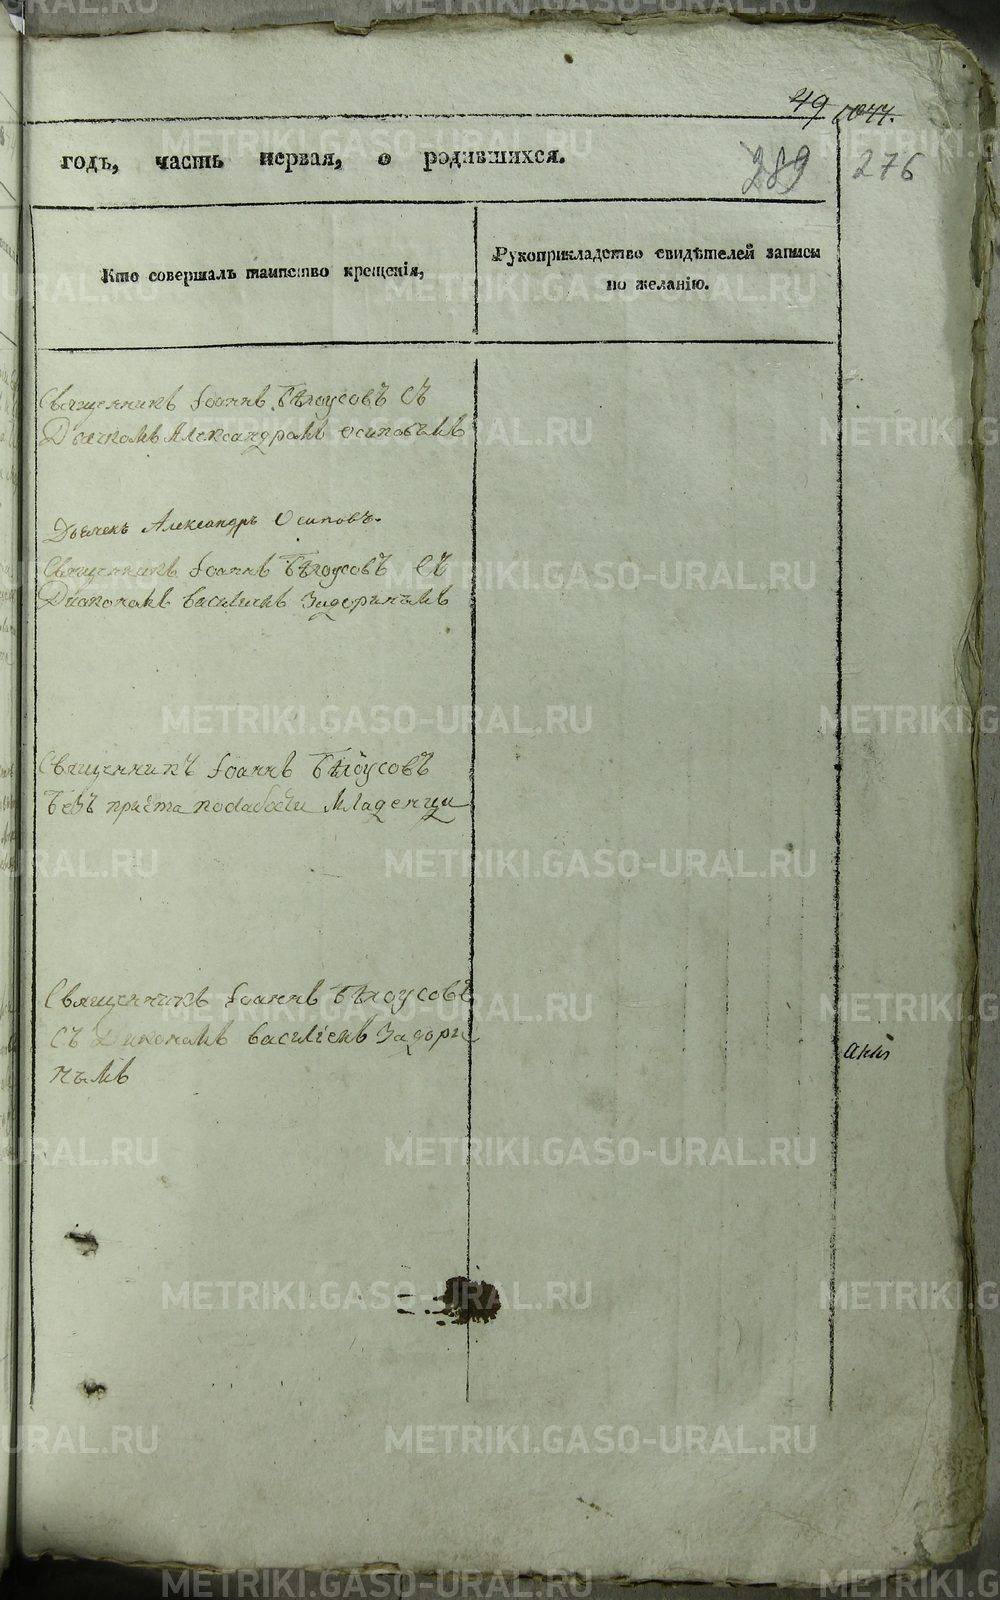 49
289 276
годъ, часть первая, о родившихся.
Кто совершалъ таинство крещенія,
Рукоприкладство свидѣтелей записи
по желанію.
Священникъ Іоаннъ Бѣлоусовъ Съ
Дьячкомъ Александромъ Осиповымъ
Дьячекъ Александръ Осиповъ.
Священникъ Іоаннъ Бѣлоусовъ Съ
Диакономъ Василиемъ Задоринымъ
Священникъ Іоаннъ Бѣлоусовъ
Безъ причта послабости Младенца
Священникъ Іоаннъ Бѣлоусовъ
Съ Диакономъ Василіемъ Задори
нымъ
METRIKI.GASO-URAL.RU